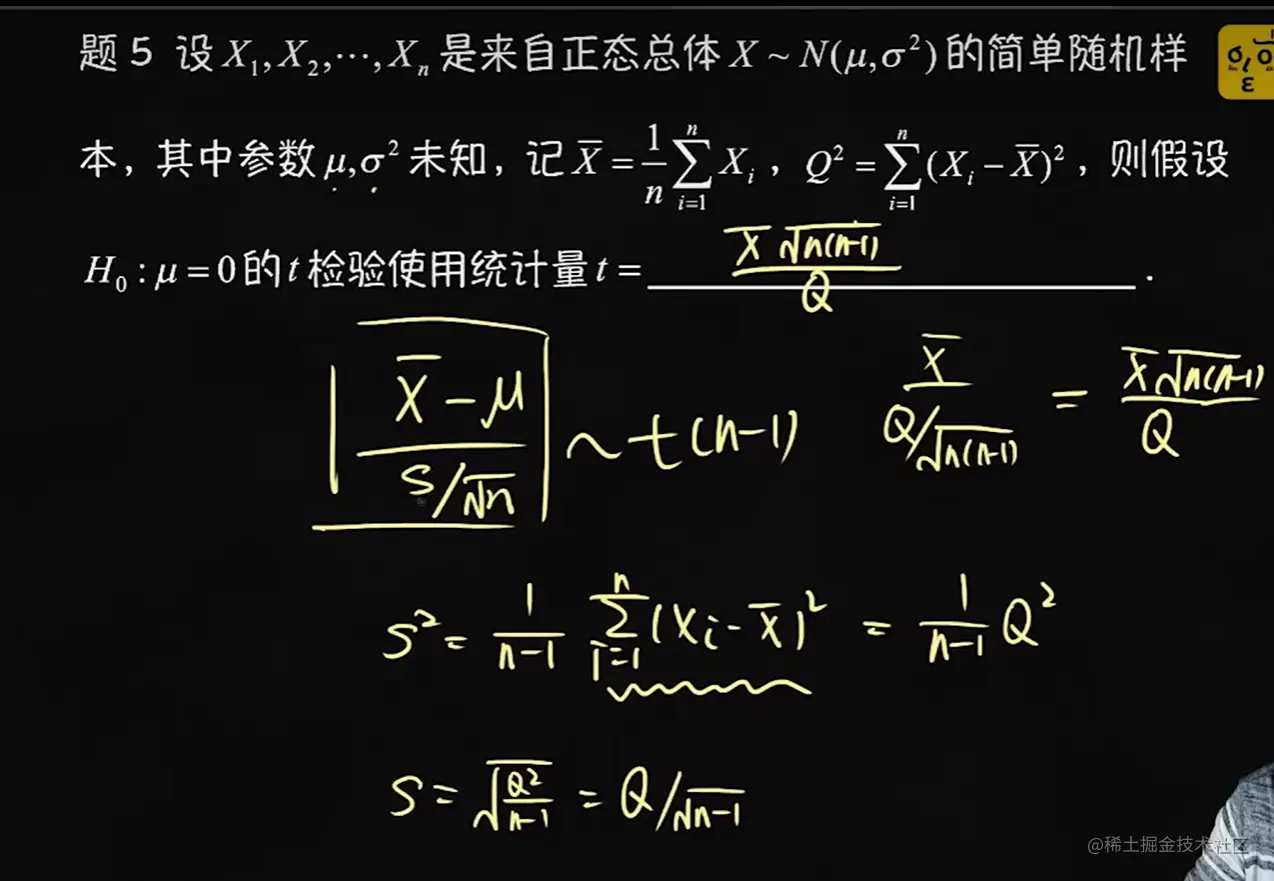 题 5 设 X₁, X₂, ⋯, Xₙ 是来自正态总体 X ~ N(μ, σ²) 的简单随机样
本，其中参数 μ, σ² 未知，记 X̄ = 1/n ∑ᵢ₌₁ⁿ Xᵢ，Q² = ∑ᵢ₌₁ⁿ (Xᵢ − X̄)²，则假设
H₀ : μ = 0 的 t 检验使用统计量 t = X̄ √n(n-1) / Q .
(X̄ − μ) / (S/√n) ~ t(n-1)
X̄ / (Q/√n(n-1)) = X̄ √n(n-1) / Q
S² = 1/(n-1) ∑ᵢ₌₁ⁿ (Xᵢ − X̄)² = 1/(n-1) Q²
S = √(Q²/(n-1)) = Q/√n-1
@稀土掘金技术社区